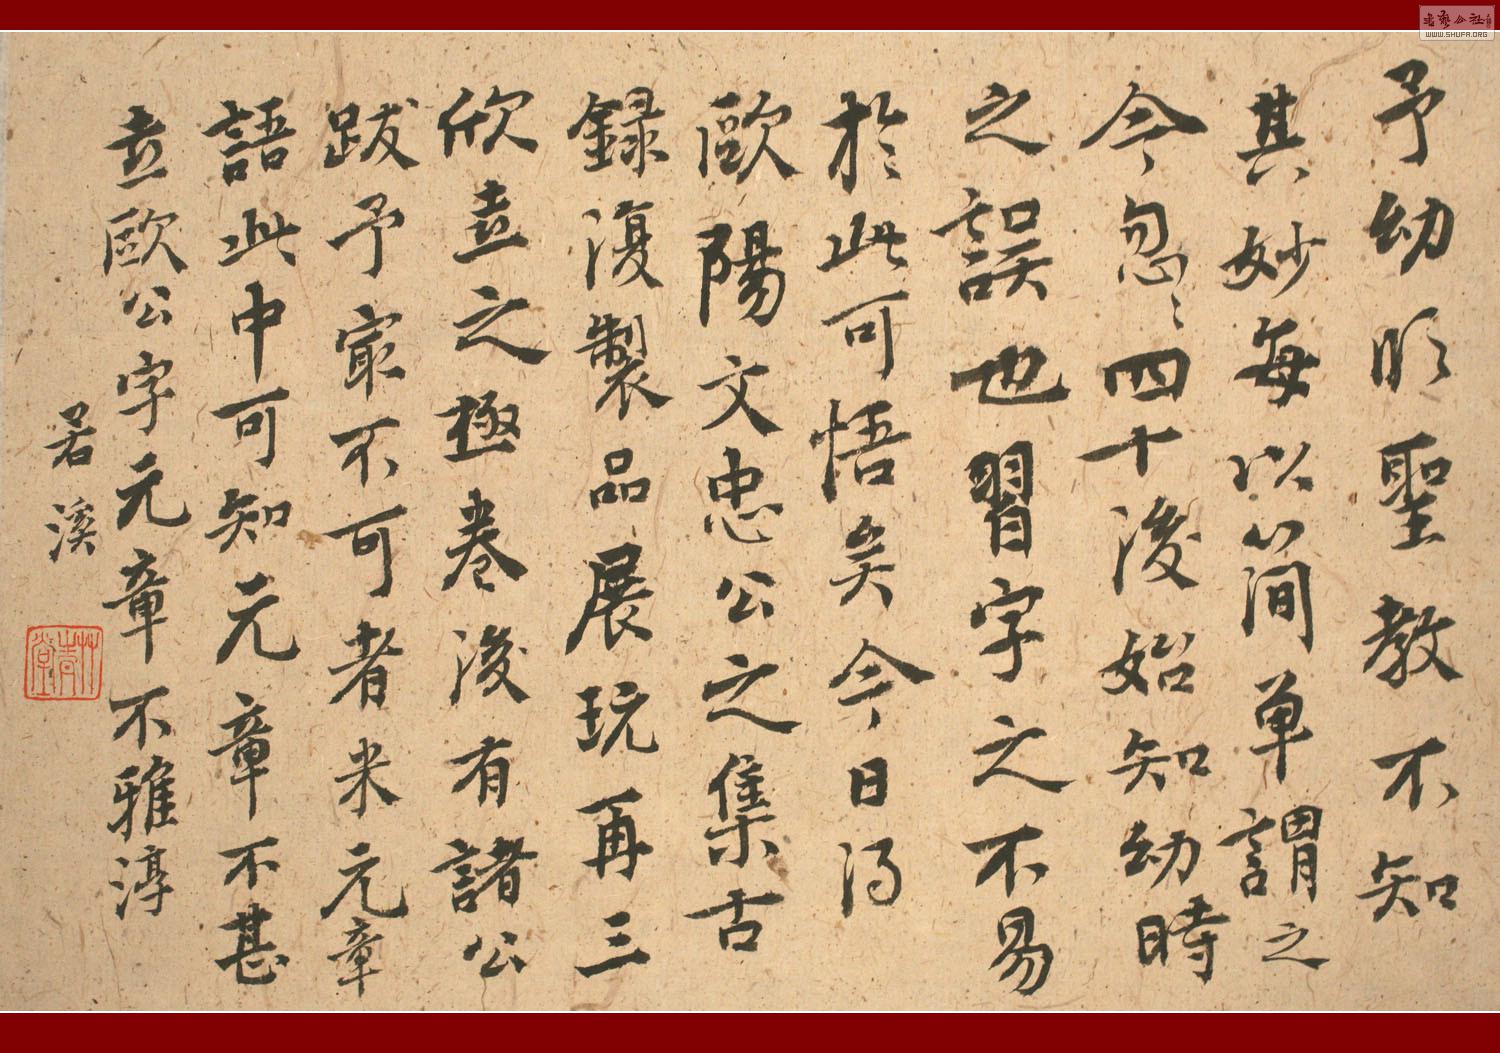 予幼臨聖教不知
其妙每以簡单謂之
今忽〻四十後始知幼時
之誤也習字之不易
於此可悟矣今日得
歐陽文忠公之集古
録復製品展玩再三
欣喜之極卷後有諸公
跋予最不可者米元章
語此中可知元章不甚
喜歐公字元章不雅淳
若溪
WWW.SHUFA.ORG